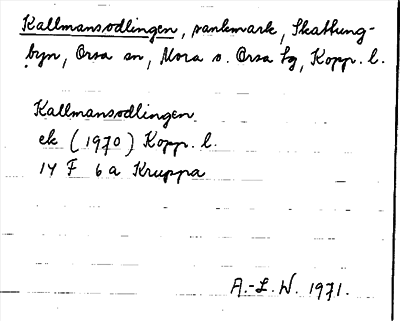 Kallmansodlingen, sankmark, Skattung-
byn, Orsa sn, Mora o. Orsa tg, Kopp. l.
Kallmansodlingen
ek (1970) Kopp. l.
14 F 6 a Kruppa
A.-L. W. 1971.